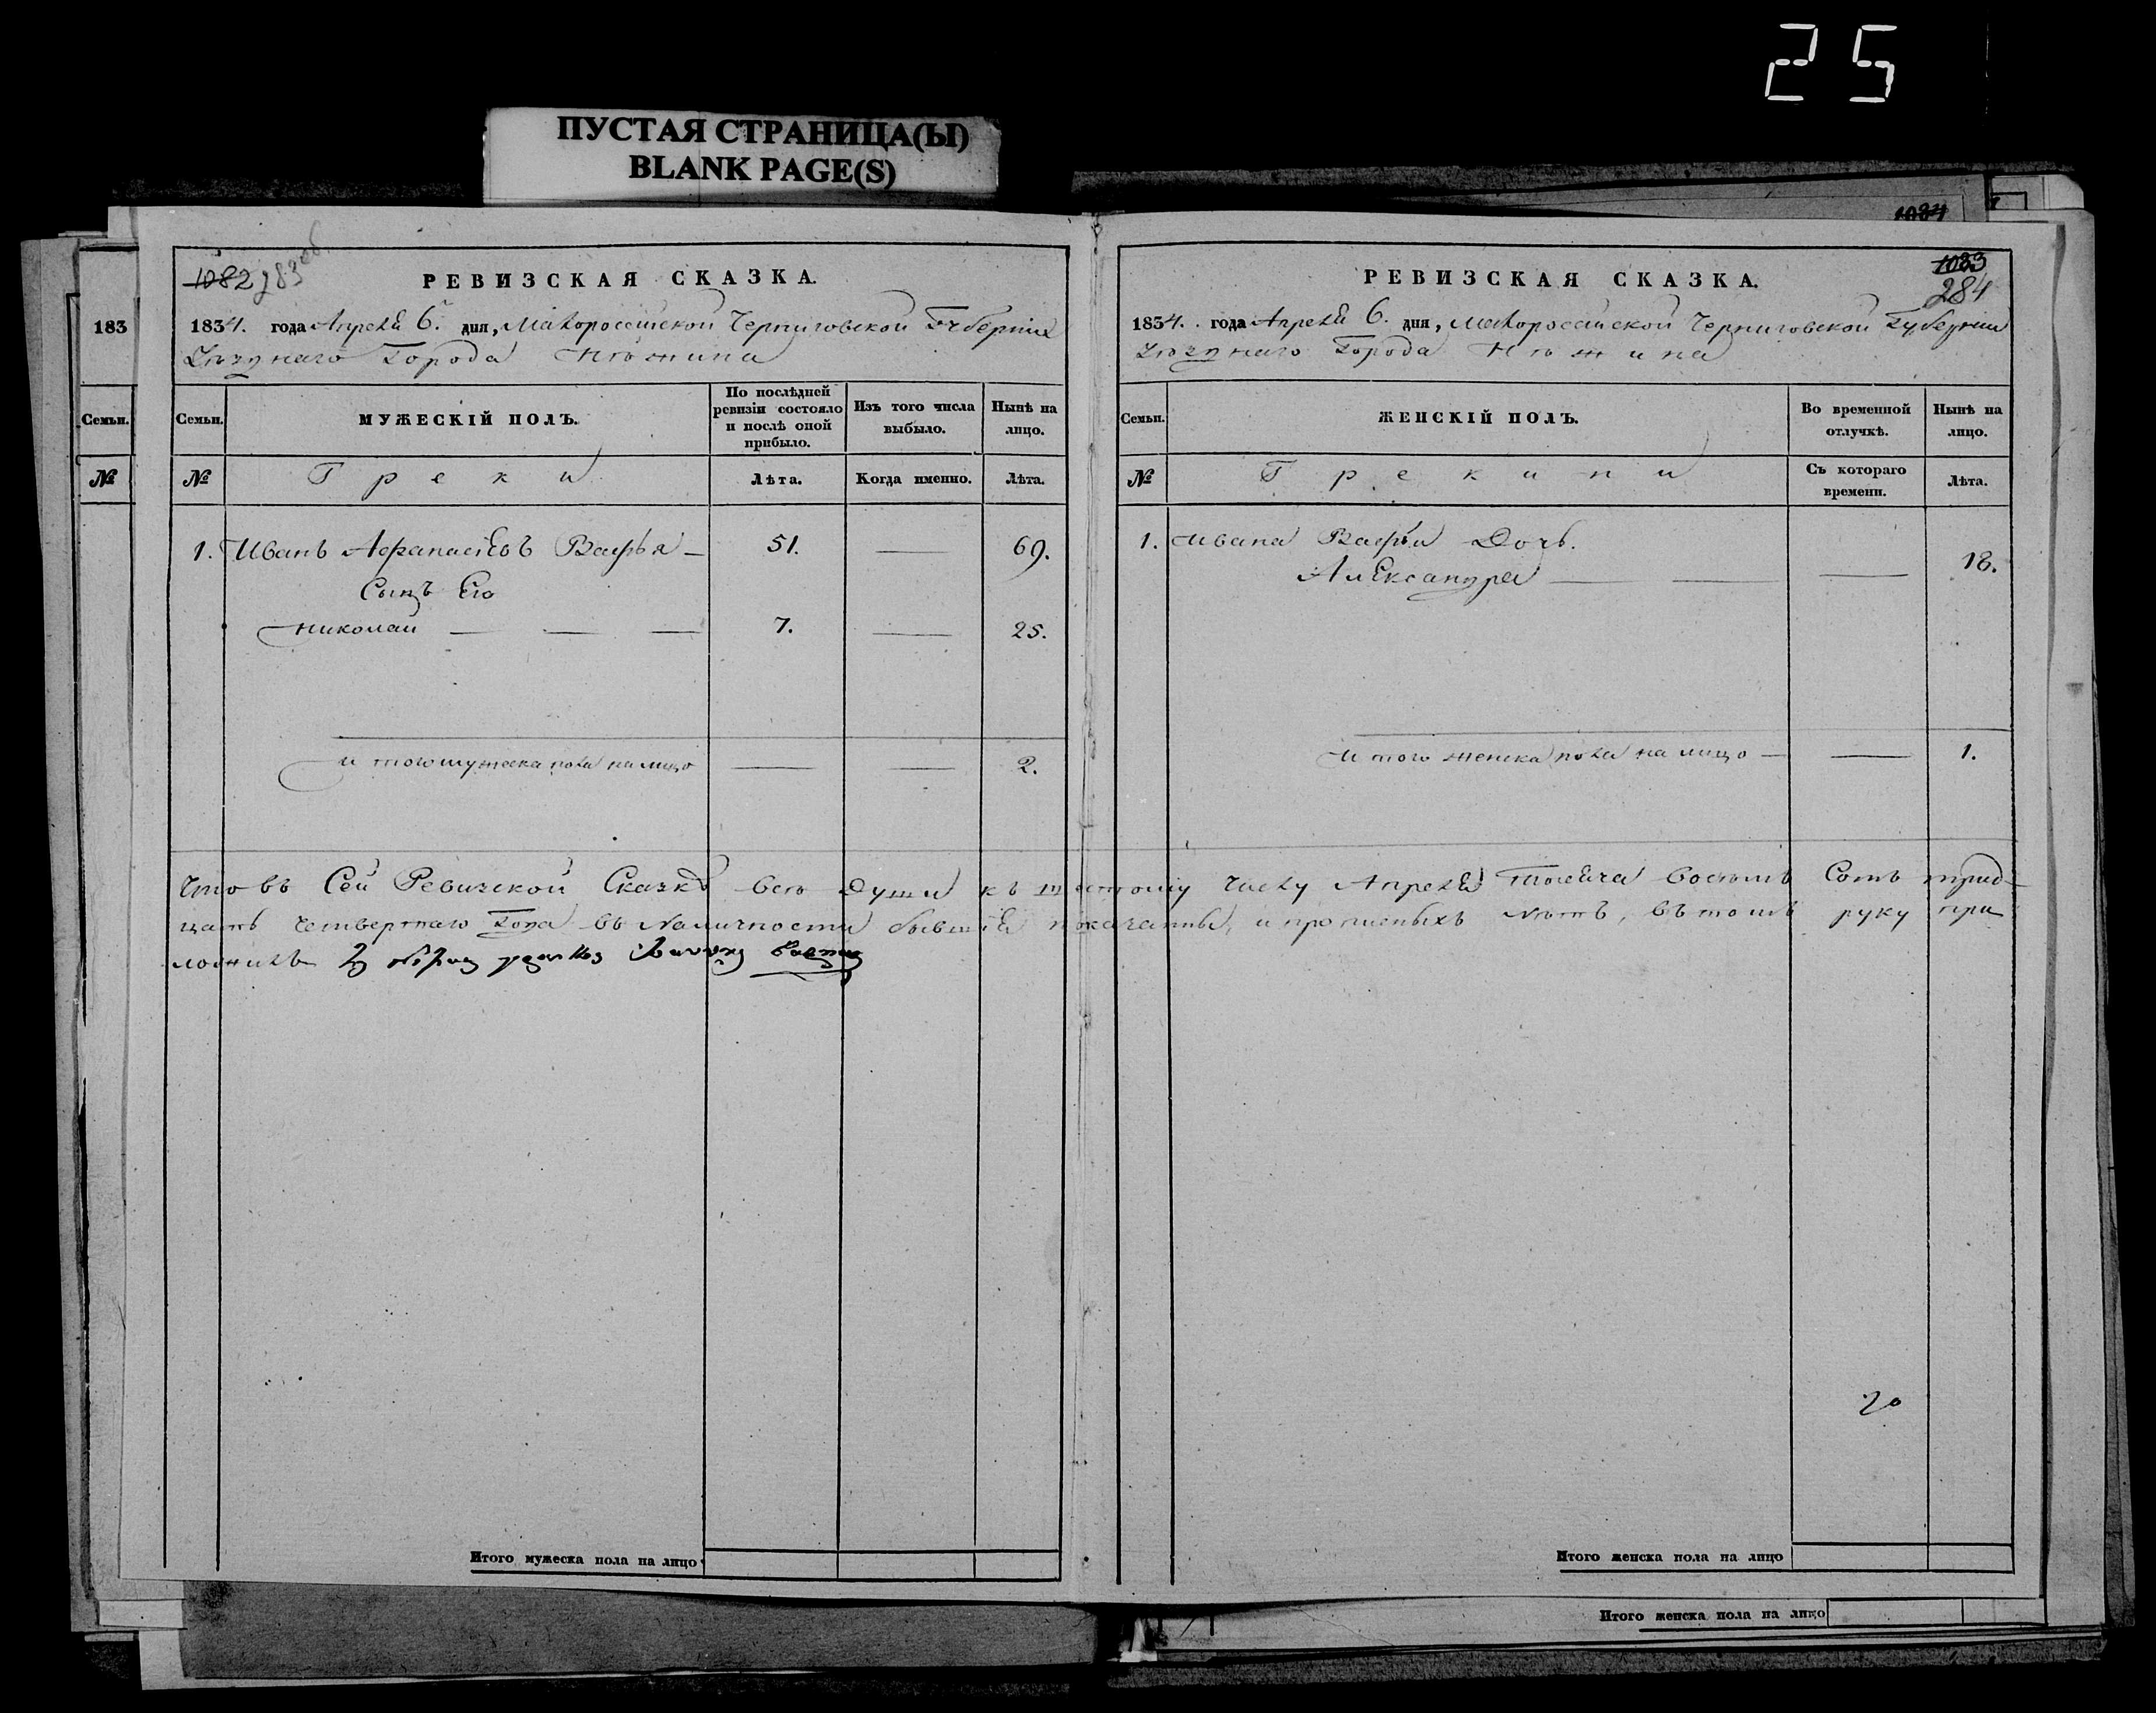 25
ПУСТАЯ СТРАНИЦА(Ы)
BLANK PAGE(S)
1084
183
Семьи.
№
1082 283 об.
РЕВИЗСКАЯ СКАЗКА.
1834. года Апреля 6. дня, Малороссийской Черниговской Губернии
Уезднаго Города Нѣжина
Семьи.
МУЖЕСКІЙ ПОЛЪ.
По послѣдней ревизіи состояло и послѣ оной прибыло.
Изъ того числа выбыло.
Нынѣ на лицо.
№
Греки
Лѣта.
Когда именно.
Лѣта.
1. Иванъ Афанасіевъ Вафья — 51. — 69.
Сынъ Его
Николай — — — 7. — 25.
и того мужеска пола на лицо — — 2.
1083
284
РЕВИЗСКАЯ СКАЗКА.
1834. года Апреля 6. дня, Малороссійской Черниговской Губернии
Уезднаго Города Нѣжина
Семьи.
ЖЕНСКІЙ ПОЛЪ.
Во временной отлучкѣ.
Нынѣ на лицо.
№
Грекини
Съ котораго времени.
Лѣта.
1. Ивана Вафьи Дочь.
Александра — — — 18.
и того женска пола на лицо — — 1.
Что въ Сей Ревизской Сказкѣ всѣ Души къ шестому числу Апреля Тысяча восемъ Сотъ трид-
цать Четвертаго Года въ Наличности бывшіе показанны, и прописныхъ нѣтъ, въ томъ руку при
ложилъ
20
Итого мужеска пола на лицо
Итого женска пола на лицо
Итого женска пола на лицо